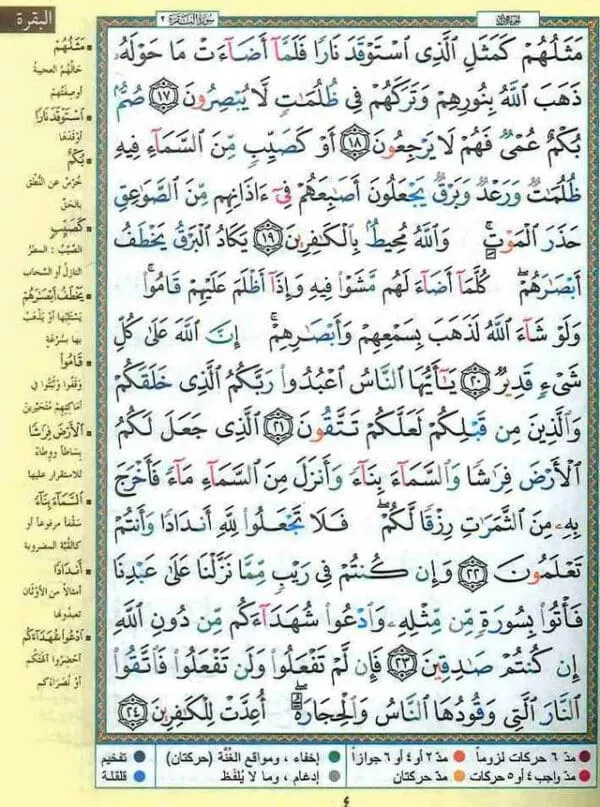 البقرة
سورة البقرة ٢
الجزء الأول
مَثَلُهُمْ كَمَثَلِ ٱلَّذِى ٱسْتَوْقَدَ نَارًا فَلَمَّآ أَضَآءَتْ مَا حَوْلَهُۥ
ذَهَبَ ٱللَّهُ بِنُورِهِمْ وَتَرَكَهُمْ فِى ظُلُمَٰتٍ لَّا يُبْصِرُونَ ١٧ صُمٌّۢ
بُكْمٌ عُمْىٌ فَهُمْ لَا يَرْجِعُونَ ١٨ أَوْ كَصَيِّبٍ مِّنَ ٱلسَّمَآءِ فِيهِ
ظُلُمَٰتٌ وَرَعْدٌ وَبَرْقٌ يَجْعَلُونَ أَصَٰبِعَهُمْ فِىٓ ءَاذَانِهِم مِّنَ ٱلصَّوَٰعِقِ
حَذَرَ ٱلْمَوْتِ ۚ وَٱللَّهُ مُحِيطٌۢ بِٱلْكَٰفِرِينَ ١٩ يَكَادُ ٱلْبَرْقُ يَخْطَفُ
أَبْصَٰرَهُمْ ۖ كُلَّمَآ أَضَآءَ لَهُم مَّشَوْا۟ فِيهِ وَإِذَآ أَظْلَمَ عَلَيْهِمْ قَامُوا۟ ۚ
وَلَوْ شَآءَ ٱللَّهُ لَذَهَبَ بِسَمْعِهِمْ وَأَبْصَٰرِهِمْ ۚ إِنَّ ٱللَّهَ عَلَىٰ كُلِّ
شَىْءٍ قَدِيرٌ ٢٠ يَٰٓأَيُّهَا ٱلنَّاسُ ٱعْبُدُوا۟ رَبَّكُمُ ٱلَّذِى خَلَقَكُمْ
وَٱلَّذِينَ مِن قَبْلِكُمْ لَعَلَّكُمْ تَتَّقُونَ ٢١ ٱلَّذِى جَعَلَ لَكُمُ
ٱلْأَرْضَ فِرَٰشًا وَٱلسَّمَآءَ بِنَآءً وَأَنزَلَ مِنَ ٱلسَّمَآءِ مَآءً فَأَخْرَجَ
بِهِۦ مِنَ ٱلثَّمَرَٰتِ رِزْقًا لَّكُمْ ۖ فَلَا تَجْعَلُوا۟ لِلَّهِ أَندَادًا وَأَنتُمْ
تَعْلَمُونَ ٢٢ وَإِن كُنتُمْ فِى رَيْبٍ مِّمَّا نَزَّلْنَا عَلَىٰ عَبْدِنَا
فَأْتُوا۟ بِسُورَةٍ مِّن مِّثْلِهِۦ وَٱدْعُوا۟ شُهَدَآءَكُم مِّن دُونِ ٱللَّهِ
إِن كُنتُمْ صَٰدِقِينَ ٢٣ فَإِن لَّمْ تَفْعَلُوا۟ وَلَن تَفْعَلُوا۟ فَٱتَّقُوا۟
ٱلنَّارَ ٱلَّتِى وَقُودُهَا ٱلنَّاسُ وَٱلْحِجَارَةُ ۖ أُعِدَّتْ لِلْكَٰفِرِينَ ٢٤
مَثَلُهُمْ
حالُهُم العجيبة
أو صِفَتُهم
ٱسْتَوْقَدَ نَارًا
أوْقدَها
بُكْمٌ
خُرْسٌ عن النُّطْقِ
بالحَقّ
كَصَيِّبٍ
الصَّيِّبُ : المطرُ
النازلُ أو السَّحاب
يَخْطَفُ أَبْصَٰرَهُمْ
يَسْتَلِبُها أو يَذْهَبُ
بها بسُرْعَةٍ
قَامُوا۟
وَقَفُوا وَثَبَتُوا في
أماكِنِهِمْ مُتَحَيِّرِين
ٱلْأَرْضَ فِرَٰشًا
بِساطاً ووِطاءً
للاستقرار عليها
ٱلسَّمَآءَ بِنَآءً
سَقْفاً مرفوعاً أو
كالقُبَّة المضروبة
أَندَادًا
أمثالاً من الأوْثانِ
تعبدُونها
ٱدْعُوا۟ شُهَدَآءَكُم
أحْضِرُوا آلهتَكُم
أو نُصَراءَكم
مدّ ٦ حركات لزوماً
مدّ ٢ أو ٤ أو ٦ جوازاً
إخفاء ، ومواقع الغُنَّة (حركتان)
تفخيم
مدّ واجب ٤ أو ٥ حركات
مدّ حركتان
إدغام ، وما لا يُلفَظ
قلقلة
٤